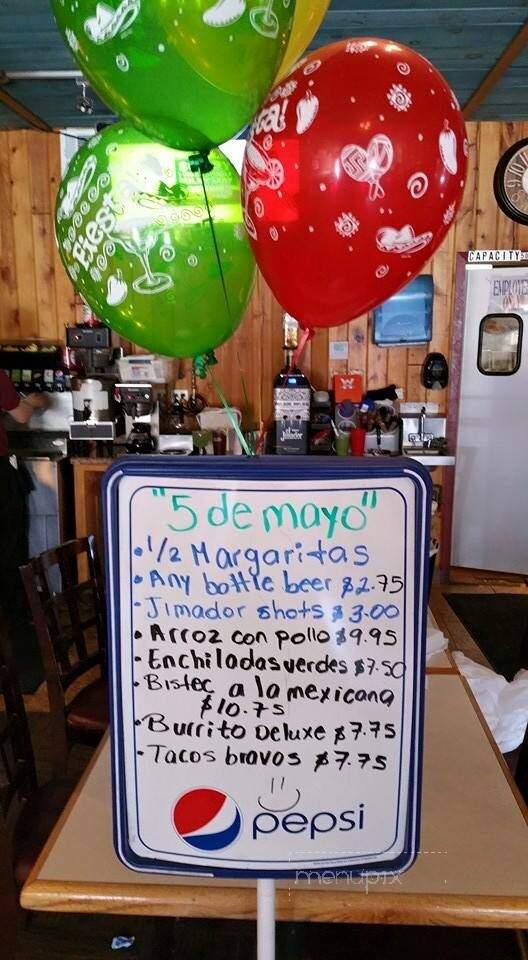 Fiesta!
sta!
CAPACITY
EMPLOYEE
Jimador
"5 de mayo"
• 1/2 Margaritas
• Any bottle beer $2.75
- Jimador shots $3.00
• Arroz con pollo $9.95
• Enchiladas verdes $7.50
• Bistec a la mexicana
$10.75
• Burrito Deluxe $7.75
• Tacos bravos $7.75
pepsi
menupix